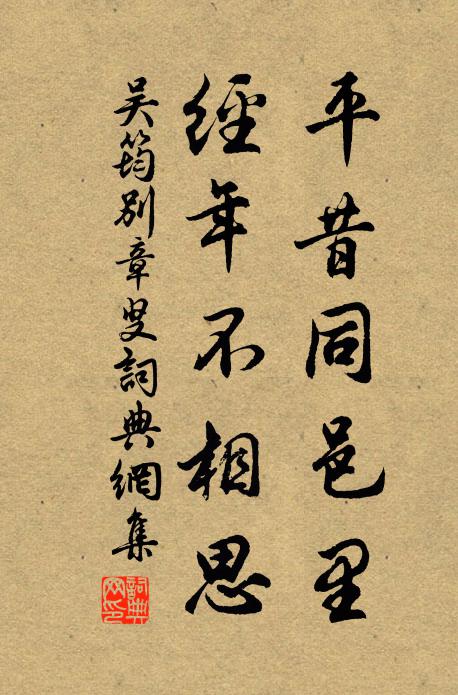 平昔同邑里
經年不相思
吳筠別章叟詞典網集
詞典網印